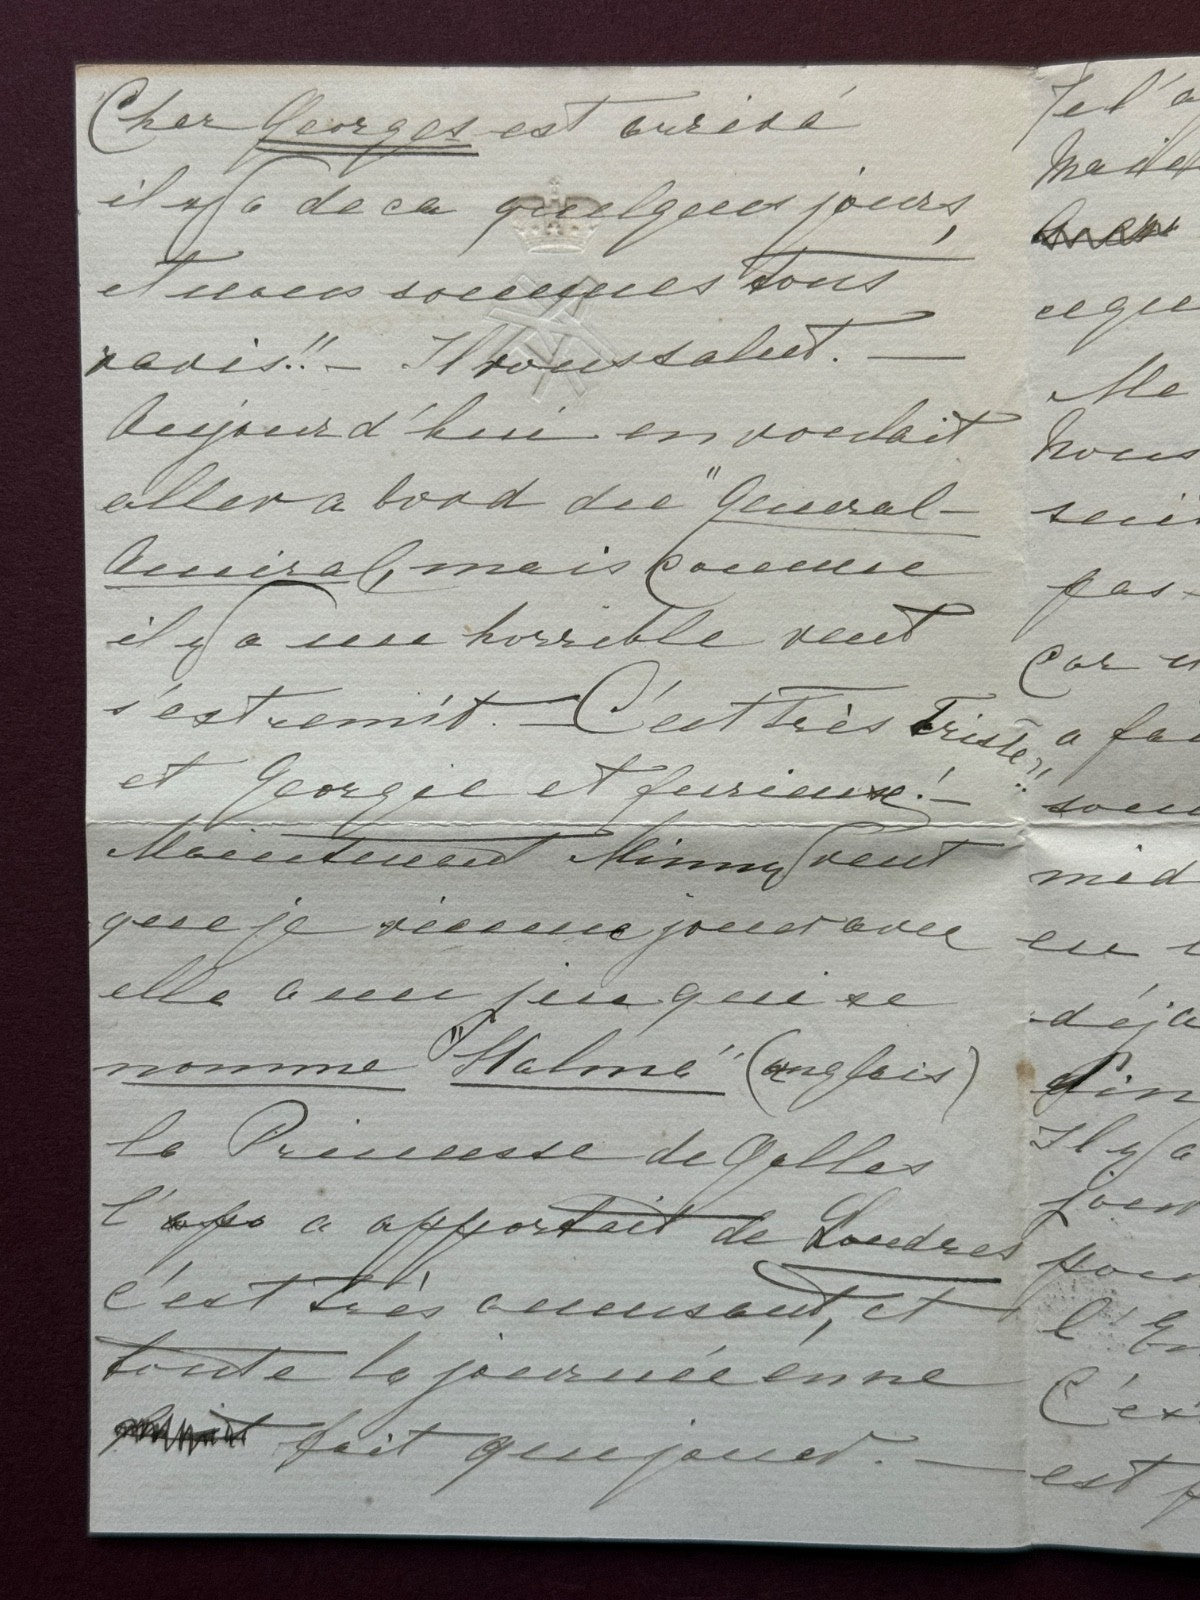 Cher Georges est arrivé
il y a de ca quelques jours,
et nous sommes tous
ravis!! – Il vous salut. —
Aujourd'hui en voulait
aller a bord du "General-
Amiral, mais comme
il y a un horrible vent
s'est remit. – C'est très triste!!
et Georgie et furieuse! –
Maintenant Minny veut
que je vienne jouer avec
elle a un jeu qui se
nomme "Halma" (anglais)
la Princesse de Galles
l' a apportait de Londres
c'est très amusant, et
toute la journée énne
fait que jouer. —
Je l'a
Made
eque
Me
Nous
seui
pas-
Car u
a fai
sou
mid
en
déja
fin
Il y a
jou
pou
l'En
C'es
est p